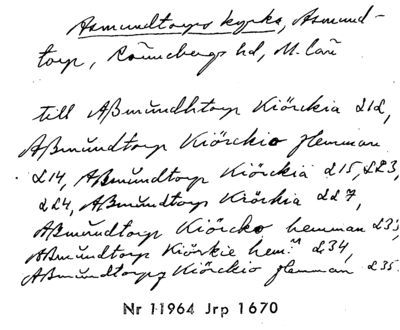 Asmundtorps kyrka, Asmund-
torp, Rönnebergs hd, M. län
till Aßmŭndhtorp Kiörckia £12,
Aßmŭndtorp Kiörckio hemman
£14, Aßmŭndtorp Kiörckiä £15, £23,
£24, Aßmŭndtorp Kiörkia £27,
Aßmŭndtorp Kiörcko hemman £33
Aßmŭndtorp Kiörkie hem: £34,
Aßmŭndtorpz Kiörckio hemman £35
Nr 11964 Jrp 1670